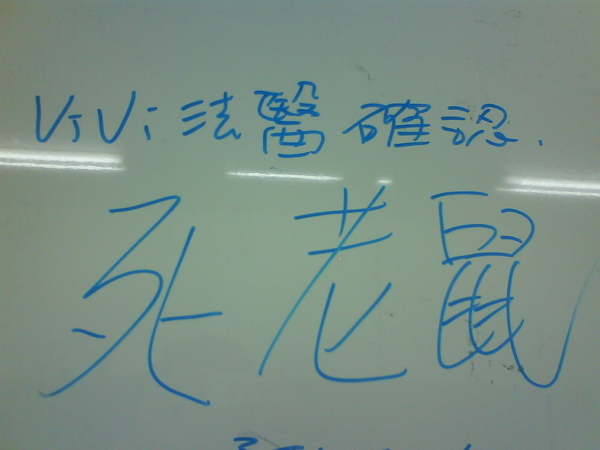 ViVi法醫確認.
死老鼠